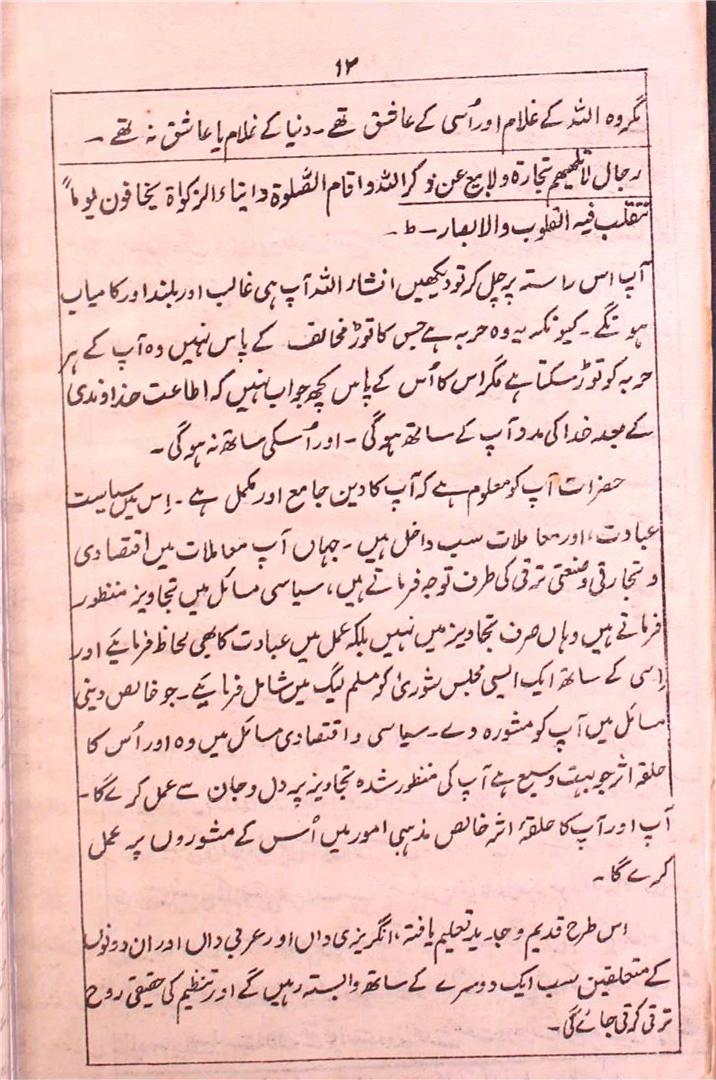 ۱۲
مگر وہ اللہ کے غلام اور اُسی کے عاشق تھے ۔ دنیا کے غلام یا عاشق نہ تھے ۔
رجال لا تلھیھم تجارۃ ولا بیع عن ذکر اللہ و اقام الصّلوۃ و ایتاء الزکواۃ یخافون یوماً
تتقلب فیہ القلوب والابصار ۔ ط ۔
آپ اس راستہ پر چل کر تو دیکھیں انشار اللہ آپ ہی غالب اور بلند اور کامیاب
ہونگے ۔ کیونکہ یہ وہ حربہ ہے جس کا توڑ مخالف کے پاس نہیں وہ آپ کے ہر
حربہ کو توڑ سکتا ہے مگر اس کا اُس کے پاس کچھ جواب نہیں کہ اطاعت خداوندی
کے بعد خدا کی مدد آپ کے ساتھ ہوگی ۔ اور اُسکی ساتھ نہ ہوگی ۔
حضرات آپ کو معلوم ہے کہ آپ کا دین جامع اور مکمل ہے ۔ اِس میں سیاست
عبادت، اور معاملات سب داخل ہیں ۔ جہاں آپ معاملات میں اقتصادی
و تجارتی و صنعتی ترقی کی طرف توجہ فرماتے ہیں، سیاسی مسائل میں تجاویز منظور
فرماتے ہیں وہاں صرف تجاویز میں نہیں بلکہ عمل میں عبادت کا بھی لحاظ فرمایئے اور
اِسی کے ساتھ ایک ایسی مجلس شوریٰ کو مسلم لیگ میں شامل فرمایئے ۔ جو خالص دینی
مسائل میں آپ کو مشورہ دے ۔ سیاسی و اقتصادی مسائل میں وہ اور اُس کا
حلقہ اثر جو بہت وسیع ہے آپ کی منظور شدہ تجاویز پر دل و جان سے عمل کرے گا ۔
آپ اور آپ کا حلقۂ اثر خالص مذہبی امور میں اُس کے مشوروں پر عمل
کرے گا ۔
اس طرح قدیم و جدید تعلیم یافتہ، انگریزی داں اور عربی داں اور ان دونوں
کے متعلقین سب ایک دوسرے کے ساتھ وابستہ رہیں گے اور تنظیم کی حقیقی روح
ترقی کرتی جائے گی ۔